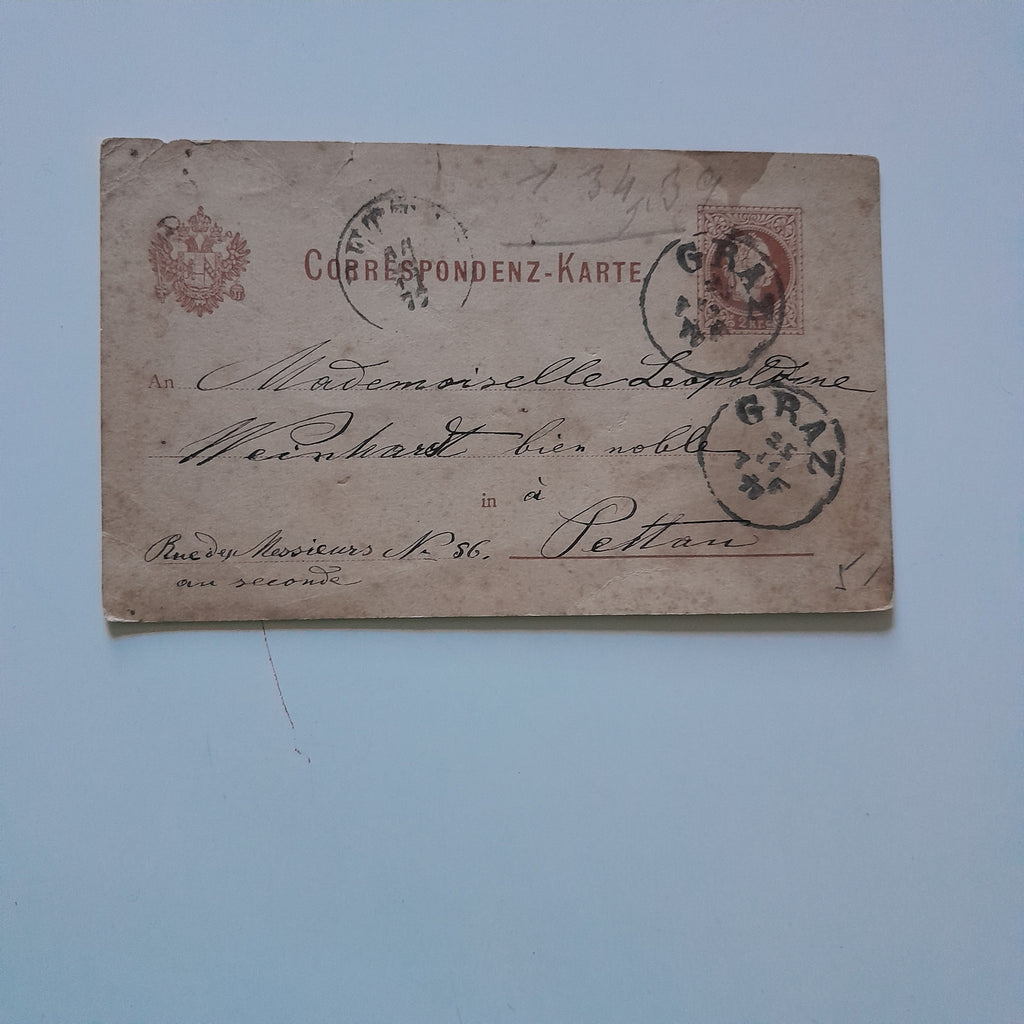 34,39
CORRESPONDENZ-KARTE
GRAZ
2 Kr.
An Mademoiselle Leopoldine
GRAZ
Weinhardt bien noble
in à
Pettau
Rue des Messieurs No 56.
au seconde